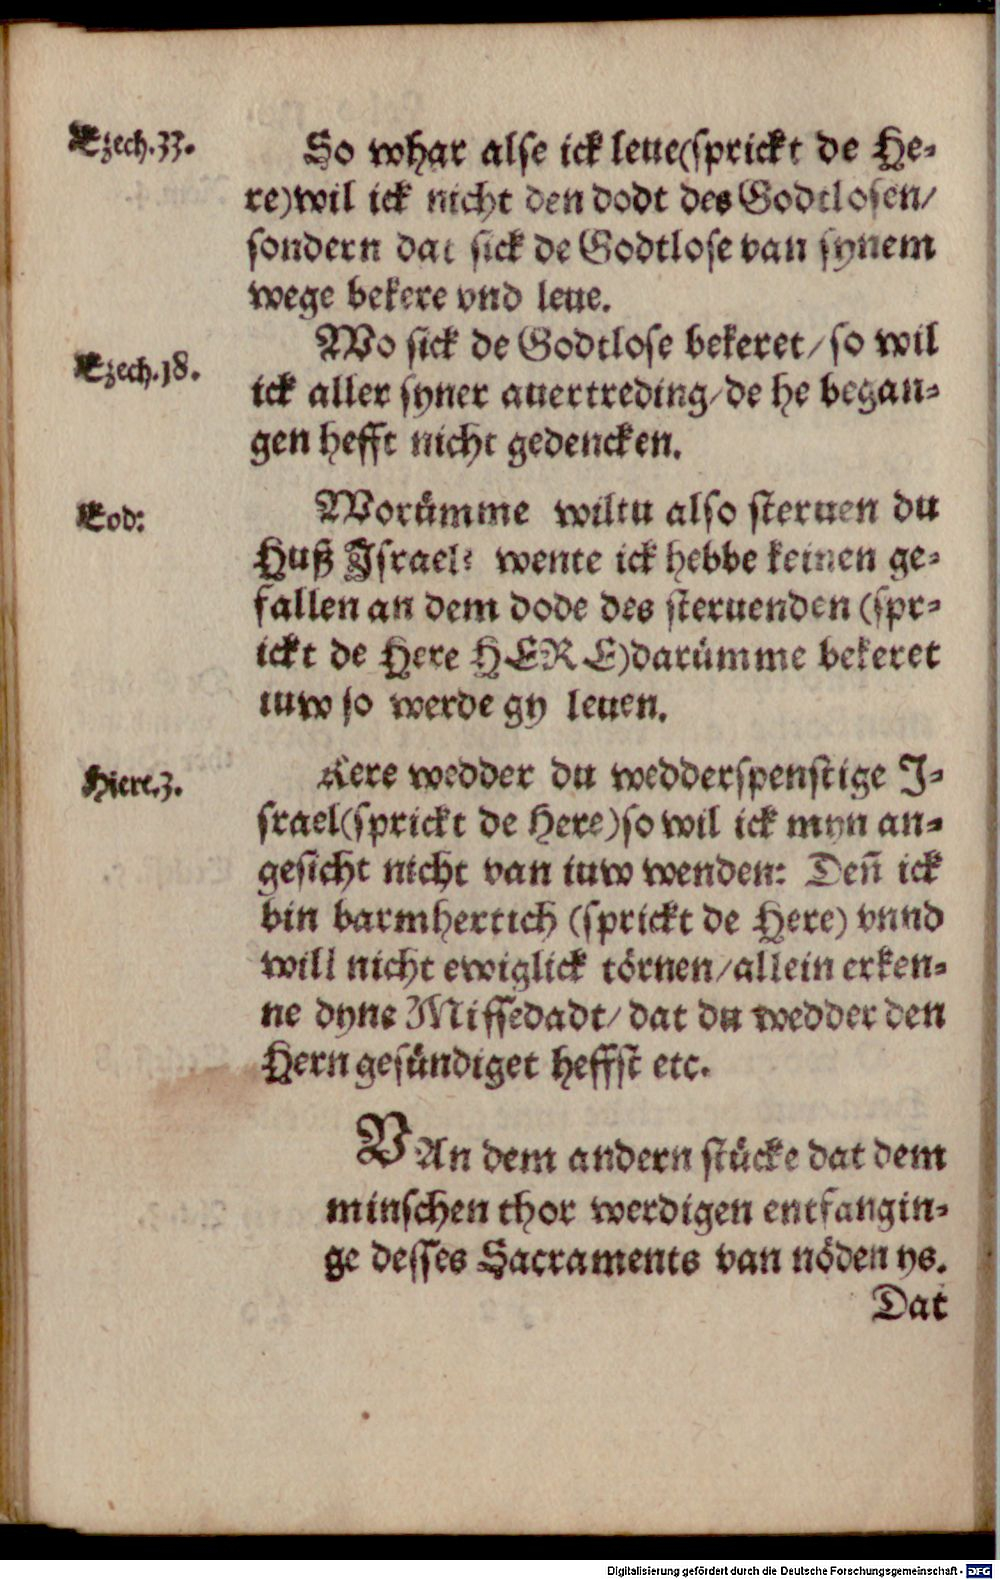 Ezech.33.
So whar alse ick leue(sprickt de He-
re)wil ick nicht den dodt des Godtlosen/
sondern dat sick de Godtlose van synem
wege bekere vnd leue.
Ezech.18.
Wo sick de Godtlose bekeret/so wil
ick aller syner auertreding/de he began-
gen hefft nicht gedencken.
Eod:
Worümme wiltu also steruen du
Huß Israel? wente ick hebbe keinen ge-
fallen an dem dode des steruenden (spr-
ickt de Here HERE)darümme bekeret
iuw so werde gy leuen.
Hiere.3.
Kere wedder du wedderspenstige I-
srael(sprickt de Here)so wil ick myn an-
gesicht nicht van iuw wenden: Deñ ick
bin barmhertich (sprickt de Here) vnnd
will nicht ewiglick törnen/allein erken-
ne dyne Missedadt/ dat du wedder den
Hern gesündiget heffst etc.
VAn dem andern stücke dat dem
minschen thor werdigen entfangin-
ge desses Sacraments van nöden ys.
Dat
Digitalisierung gefördert durch die Deutsche Forschungsgemeinschaft - DFG